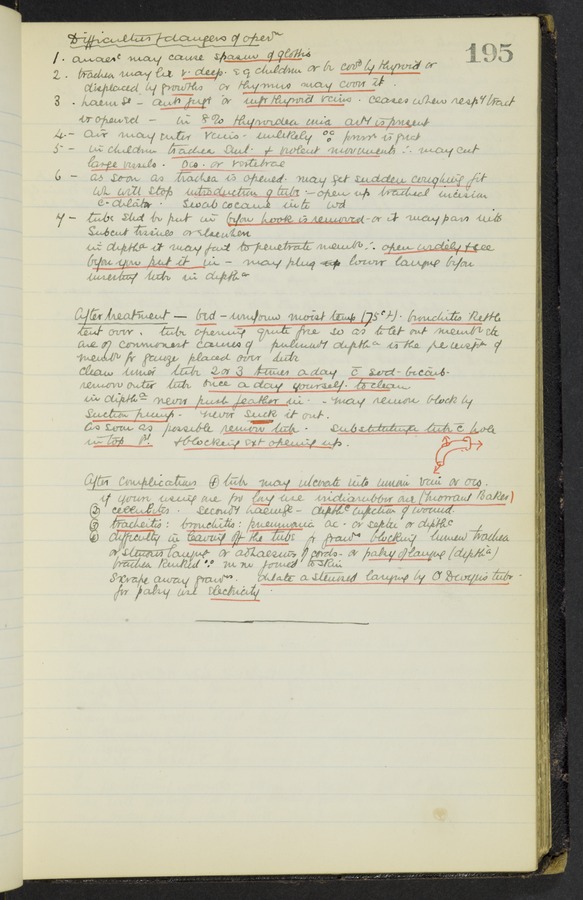 195
Difficulties & dangers of oper^n
1. anaes^c may cause spasm of glottis
2. trachea may lie v. deep. e.g. children or be cov^d by thyroid or
displaced by growths or thymus may cover it.
3. haem^ge - ant^r jug^r or inf^r thyroid veins. ceases when resp^y tract
is opened - in 8% thyroidea ima art^y is present
4- air may enter veins. unlikely ∵ press^r is great
5- in children trachea small & violent movements ∴ may cut
large vessels. oes. or vertebrae
6- as soon as trachea is opened. may get sudden coughing fit
wh will stop introduction of tube - open up tracheal incision
c̄ dilator. Swab cocaine into w^d
7- tube sh^d be put in before hook is removed - or it may pass into
subcut tissues or elsewhere
in diphth^a it may fail to penetrate memb^r ∴ open widely & see
before you put it in - may plug lower larynx before
inserting tube in diphth^a
After treatment - bed - uniform moist temp (75°+). bronchitis kettle
tent over. tube opening quite free so as to let out memb^r etc
one of commonest causes of pulmon^y diphth^a is the presence of
memb^r or gauze placed over tube
clean inner tube 2 or 3 times a day c̄ sod-bicarb.
remove outer tube once a day yourself to clean
in diphth^a never push feather in. - may remove block by
suction pump. never suck it out.
as soon as possible remove tube. substituting tube c̄ hole
in top & blocking ext opening up.
After complications ① tube may ulcerate into innom vein or oes.
if going using one for long use indiarubber one (Morrant Baker)
② cellulitis. second^y haem^ge - diphth^c infection of wound.
tracheitis: bronchitis: pneumonia ac. or septic or diphth^c
difficulty in leaving off the tube for gran^ns blocking lumen trachea
or stenosis larynx or adhesions of cords - or palsy of larynx (diphth^a)
trachea kinked ∵ joined to skin
scrape away gran^ns. dilate a stenosed larynx by O'Dwyers tube.
for palsy use electricity